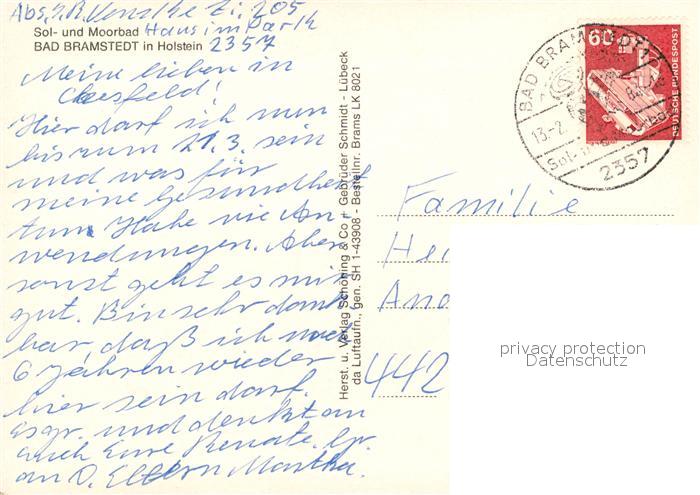 Abs. Zi. 205
Sol- und Moorbad Haus im Park
BAD BRAMSTEDT in Holstein 2357
Meine lieben in
Coesfeld!
Hier darf ich nun
bis zum 21.3. sein
und was für
meine Gesundheit
tun. Habe vie An
wendungen. Aber
sonst geht es mir
gut. Bin sehr dank
bar, daß ich nach
6 Jahren wieder
hier sein darf.
Es gr. und denkt an
euch Eure Renate. Gr.
an O. Eltern Martha.
Herst. u. Verlag Schöning & Co + Gebrüder Schmidt - Lübeck
da Luftaufn., gen. SH 1-43908 - Bestellnr. Brams LK 8021
BAD BRAMSTEDT 1
13-2
2357
60
DEUTSCHE BUNDESPOST
Familie
Hei
And
442
privacy protection
Datenschutz